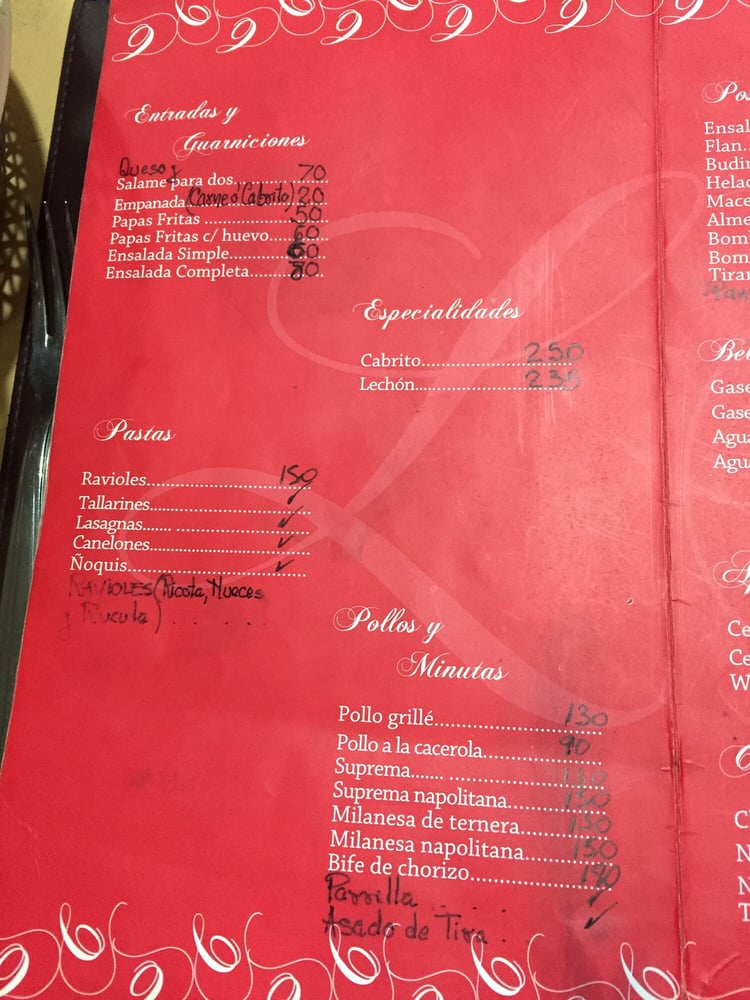 Entradas y
Guarniciones
Queso y
Salame para dos............ 70
Empanada (Carne ó Cabrito) 20
Papas Fritas ................ 50
Papas Fritas c/ huevo.... 60
Ensalada Simple............ 60
Ensalada Completa........ 80
Especialidades
Cabrito............... 250
Lechón............... 235
Pastas
Ravioles............... 150
Tallarines............... ✓
Lasagnas....... ............... ✓
Canelones............... ✓
Ñoquis............... ✓
RAVIOLES (Ricota, Nueces
y Rucula) . . . . . .
Pollos y
Minutas
Pollo grillé............... 130
Pollo a la cacerola............ 90
Suprema....... ............... 130
Suprema napolitana......... 150
Milanesa de ternera......... 130
Milanesa napolitana......... 150
Bife de chorizo............... 190
Parrilla . . . . ✓
Asado de Tira . ✓
Ensal
Flan..
Budin
Helad
Mace
Alme
Bom
Bom
Tirar
Bel
Gase
Gase
Agua
Agua
Ce
Ce
W